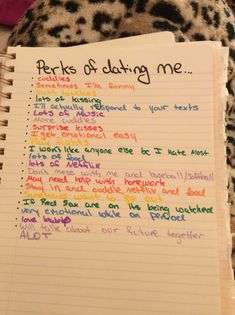 Perks of dating me...
· cuddles
· Sometimes I'm funny
· butt touches
· lots of kissing
· I'll actually respond to your texts
· Lots of Music
· More cuddles
· Surprise kisses
· I get emotional easy
· fights
· I won't like anyone else bc I hate most
· lots of food
· lots of Netflix
· Don't mess with me and baseball/softball
· May need help with homework
· Stay in and cuddle, netflix and food
· want to go out
· If Red Sox are on its being watched
· very emotional while on period
· love
· will talk about our future together
ALOT